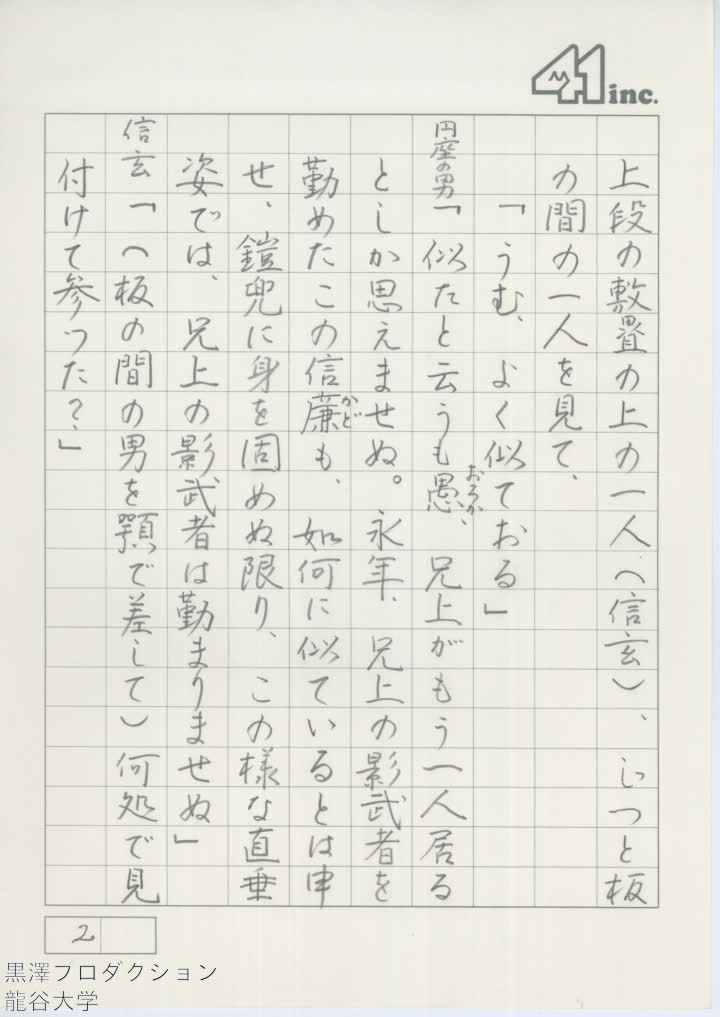 41 inc.
上段の敷畳の上の一人（信玄）、じつと板
の間の一人を見て、
「うむ、よく似ておる」
円座の男「似たと云うも愚、兄上がもう一人居る
おろか
としか思えませぬ。永年、兄上の影武者を
勤めたこの信廉も、如何に似ているとは申
かど
せ、鎧兜に身を固めぬ限り、この様な直垂
姿では、兄上の影武者は勤まりませぬ」
信玄「（板の間の男を顎で差して）何処で見
付けて参つた？」
2
黒澤プロダクション
龍谷大学